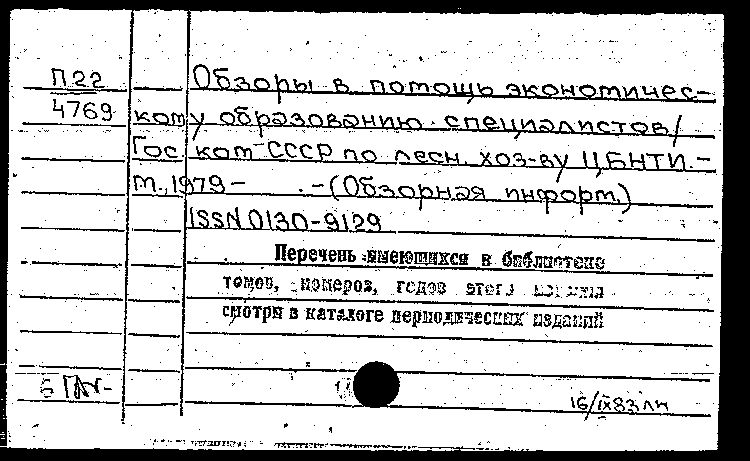 П22
4769
Обзоры в помощь экономичес-
кому образованию специалистов/
Гос. ком. СССР по лесн. хоз-ву ЦБНТИ.-
М., 1979 - . - (Обзорная информ.)
ISSN 0130-9129
Перечень имеющихся в библиотеке
томов, номеров, годов этого издания
смотри в каталоге периодических изданий
16/IX83